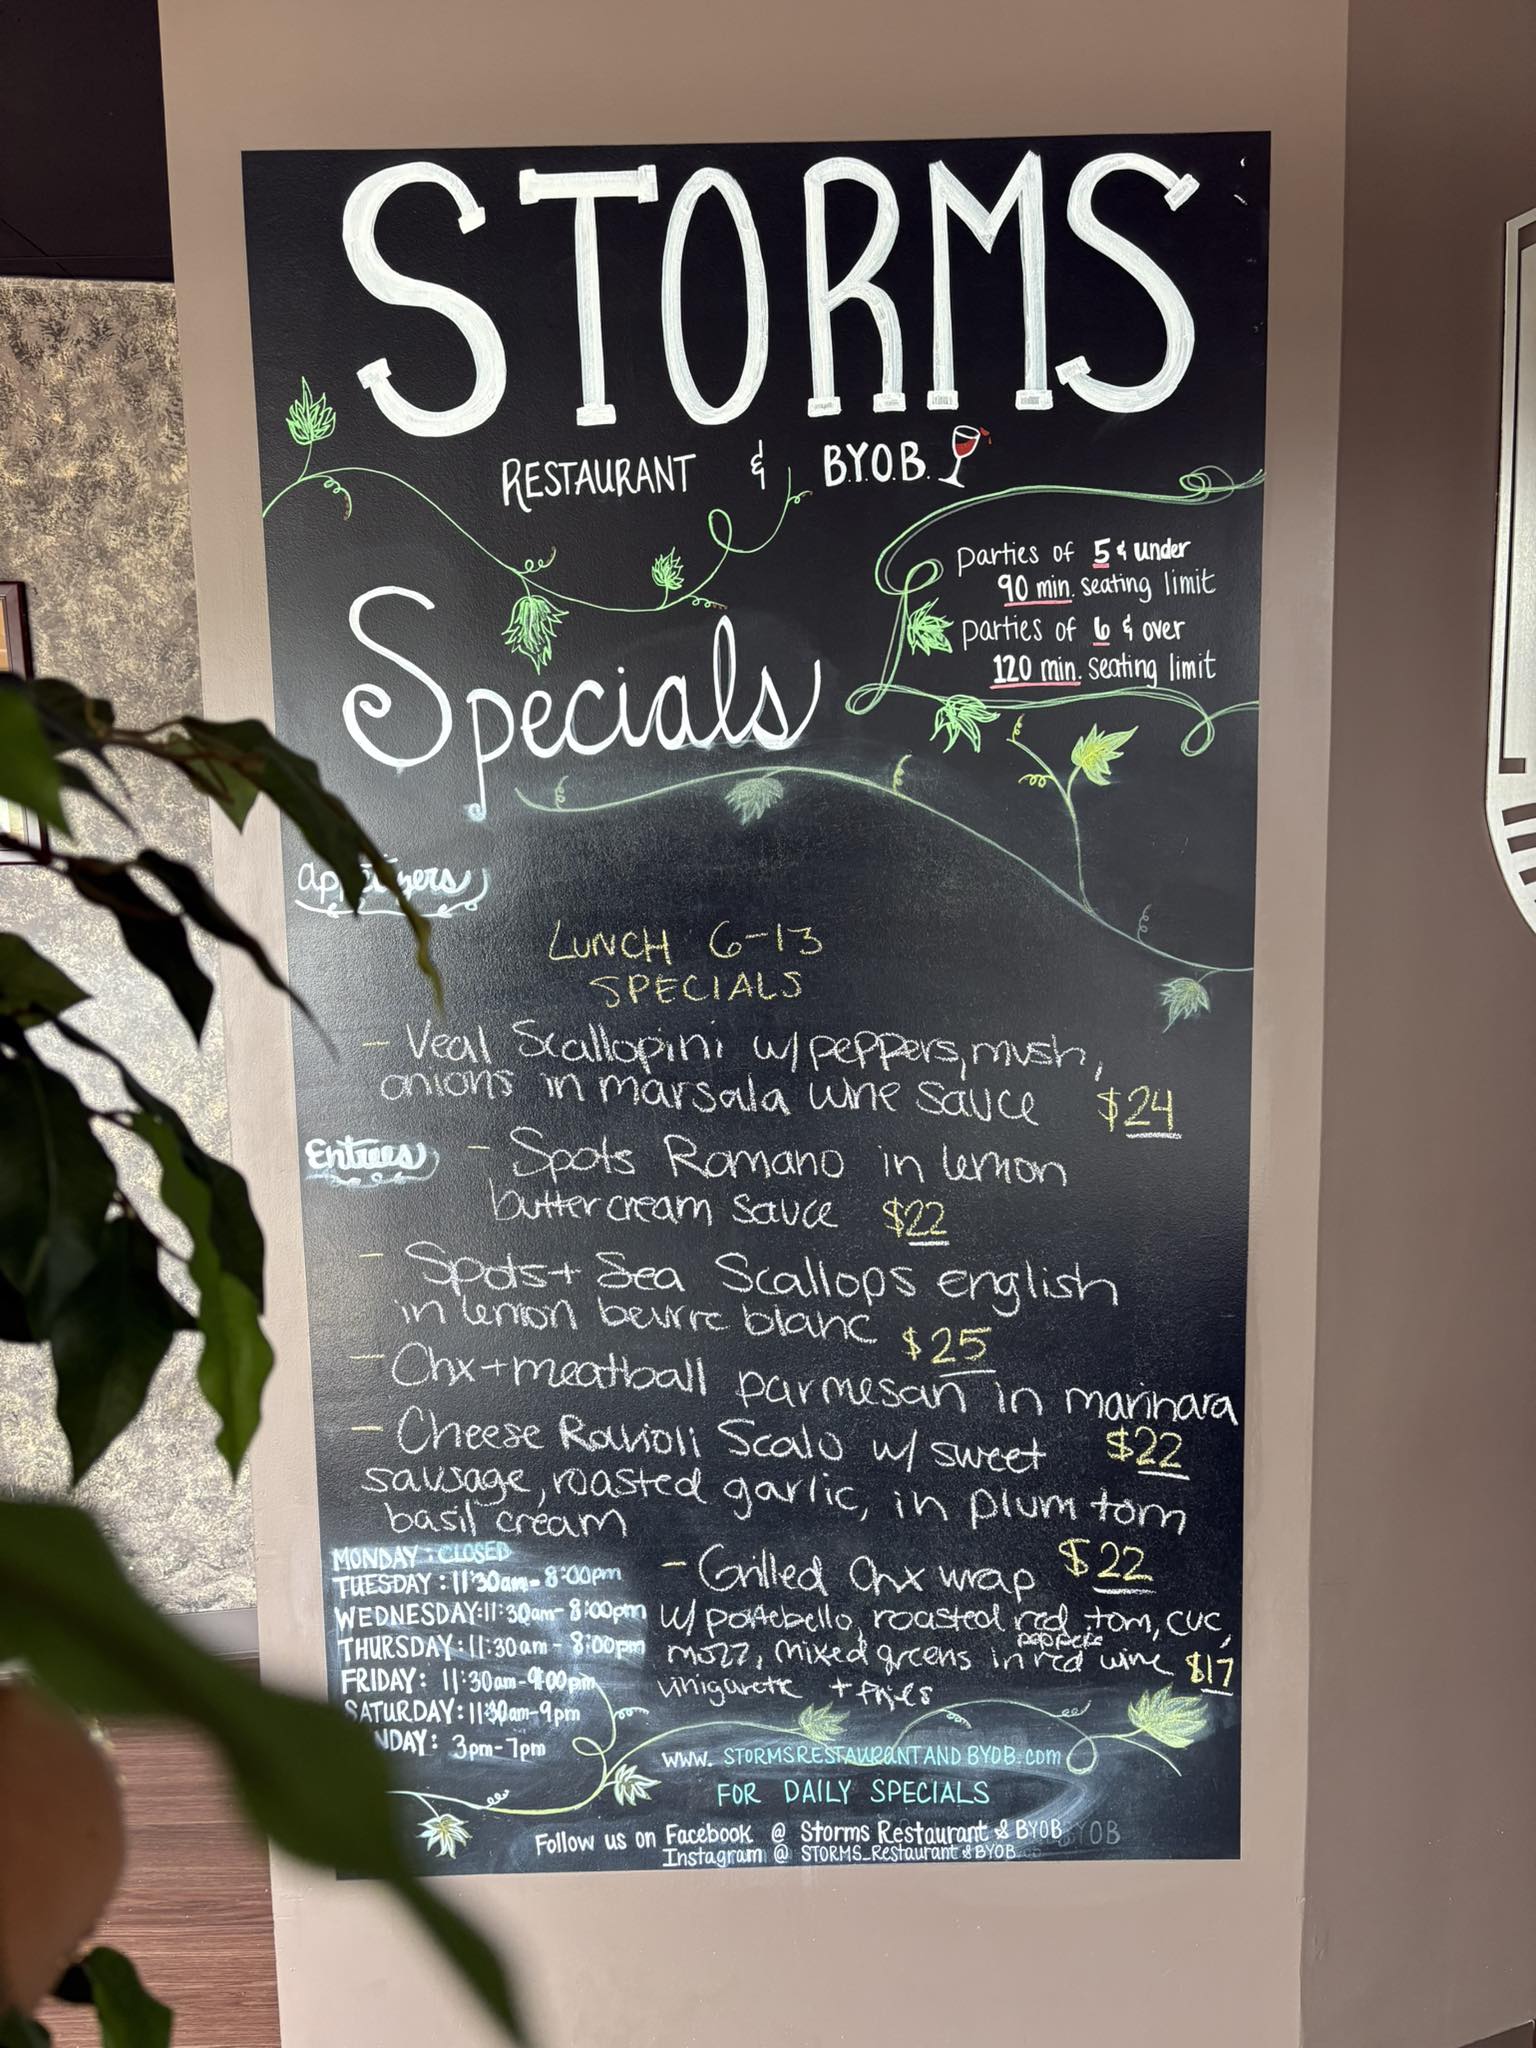 STORMS
RESTAURANT & B.Y.O.B.
parties of 5 & under
90 min. seating limit
parties of 6 & over
120 min. seating limit
Specials
appetizers
LUNCH 6-13
SPECIALS
- Veal Scallopini w/peppers, mush,
onions in marsala wine sauce $24
Entrees
- Spots Romano in lemon
butter cream sauce $22
- Spots + Sea Scallops english
in lemon beurre blanc $25
- Chx + meatball parmesan in marinara
$22
- Cheese Ravioli Scalo w/ sweet
sausage, roasted garlic, in plum tom
basil cream $22
- Grilled Chx wrap
w/ portebello, roasted red peppers, tom, cuc,
mozz, mixed greens in red wine $17
vinigarette + fries
MONDAY: CLOSED
TUESDAY: 11:30am-8:00pm
WEDNESDAY: 11:30am-8:00pm
THURSDAY: 11:30am-8:00pm
FRIDAY: 11:30am-9:00pm
SATURDAY: 11:30am-9pm
NDAY: 3pm-7pm
WWW. STORMSRESTAURANTANDBYOB.com
FOR DAILY SPECIALS
Follow us on Facebook @ Storms Restaurant & BYOB
Instagram @ STORMS_Restaurant&BYOB